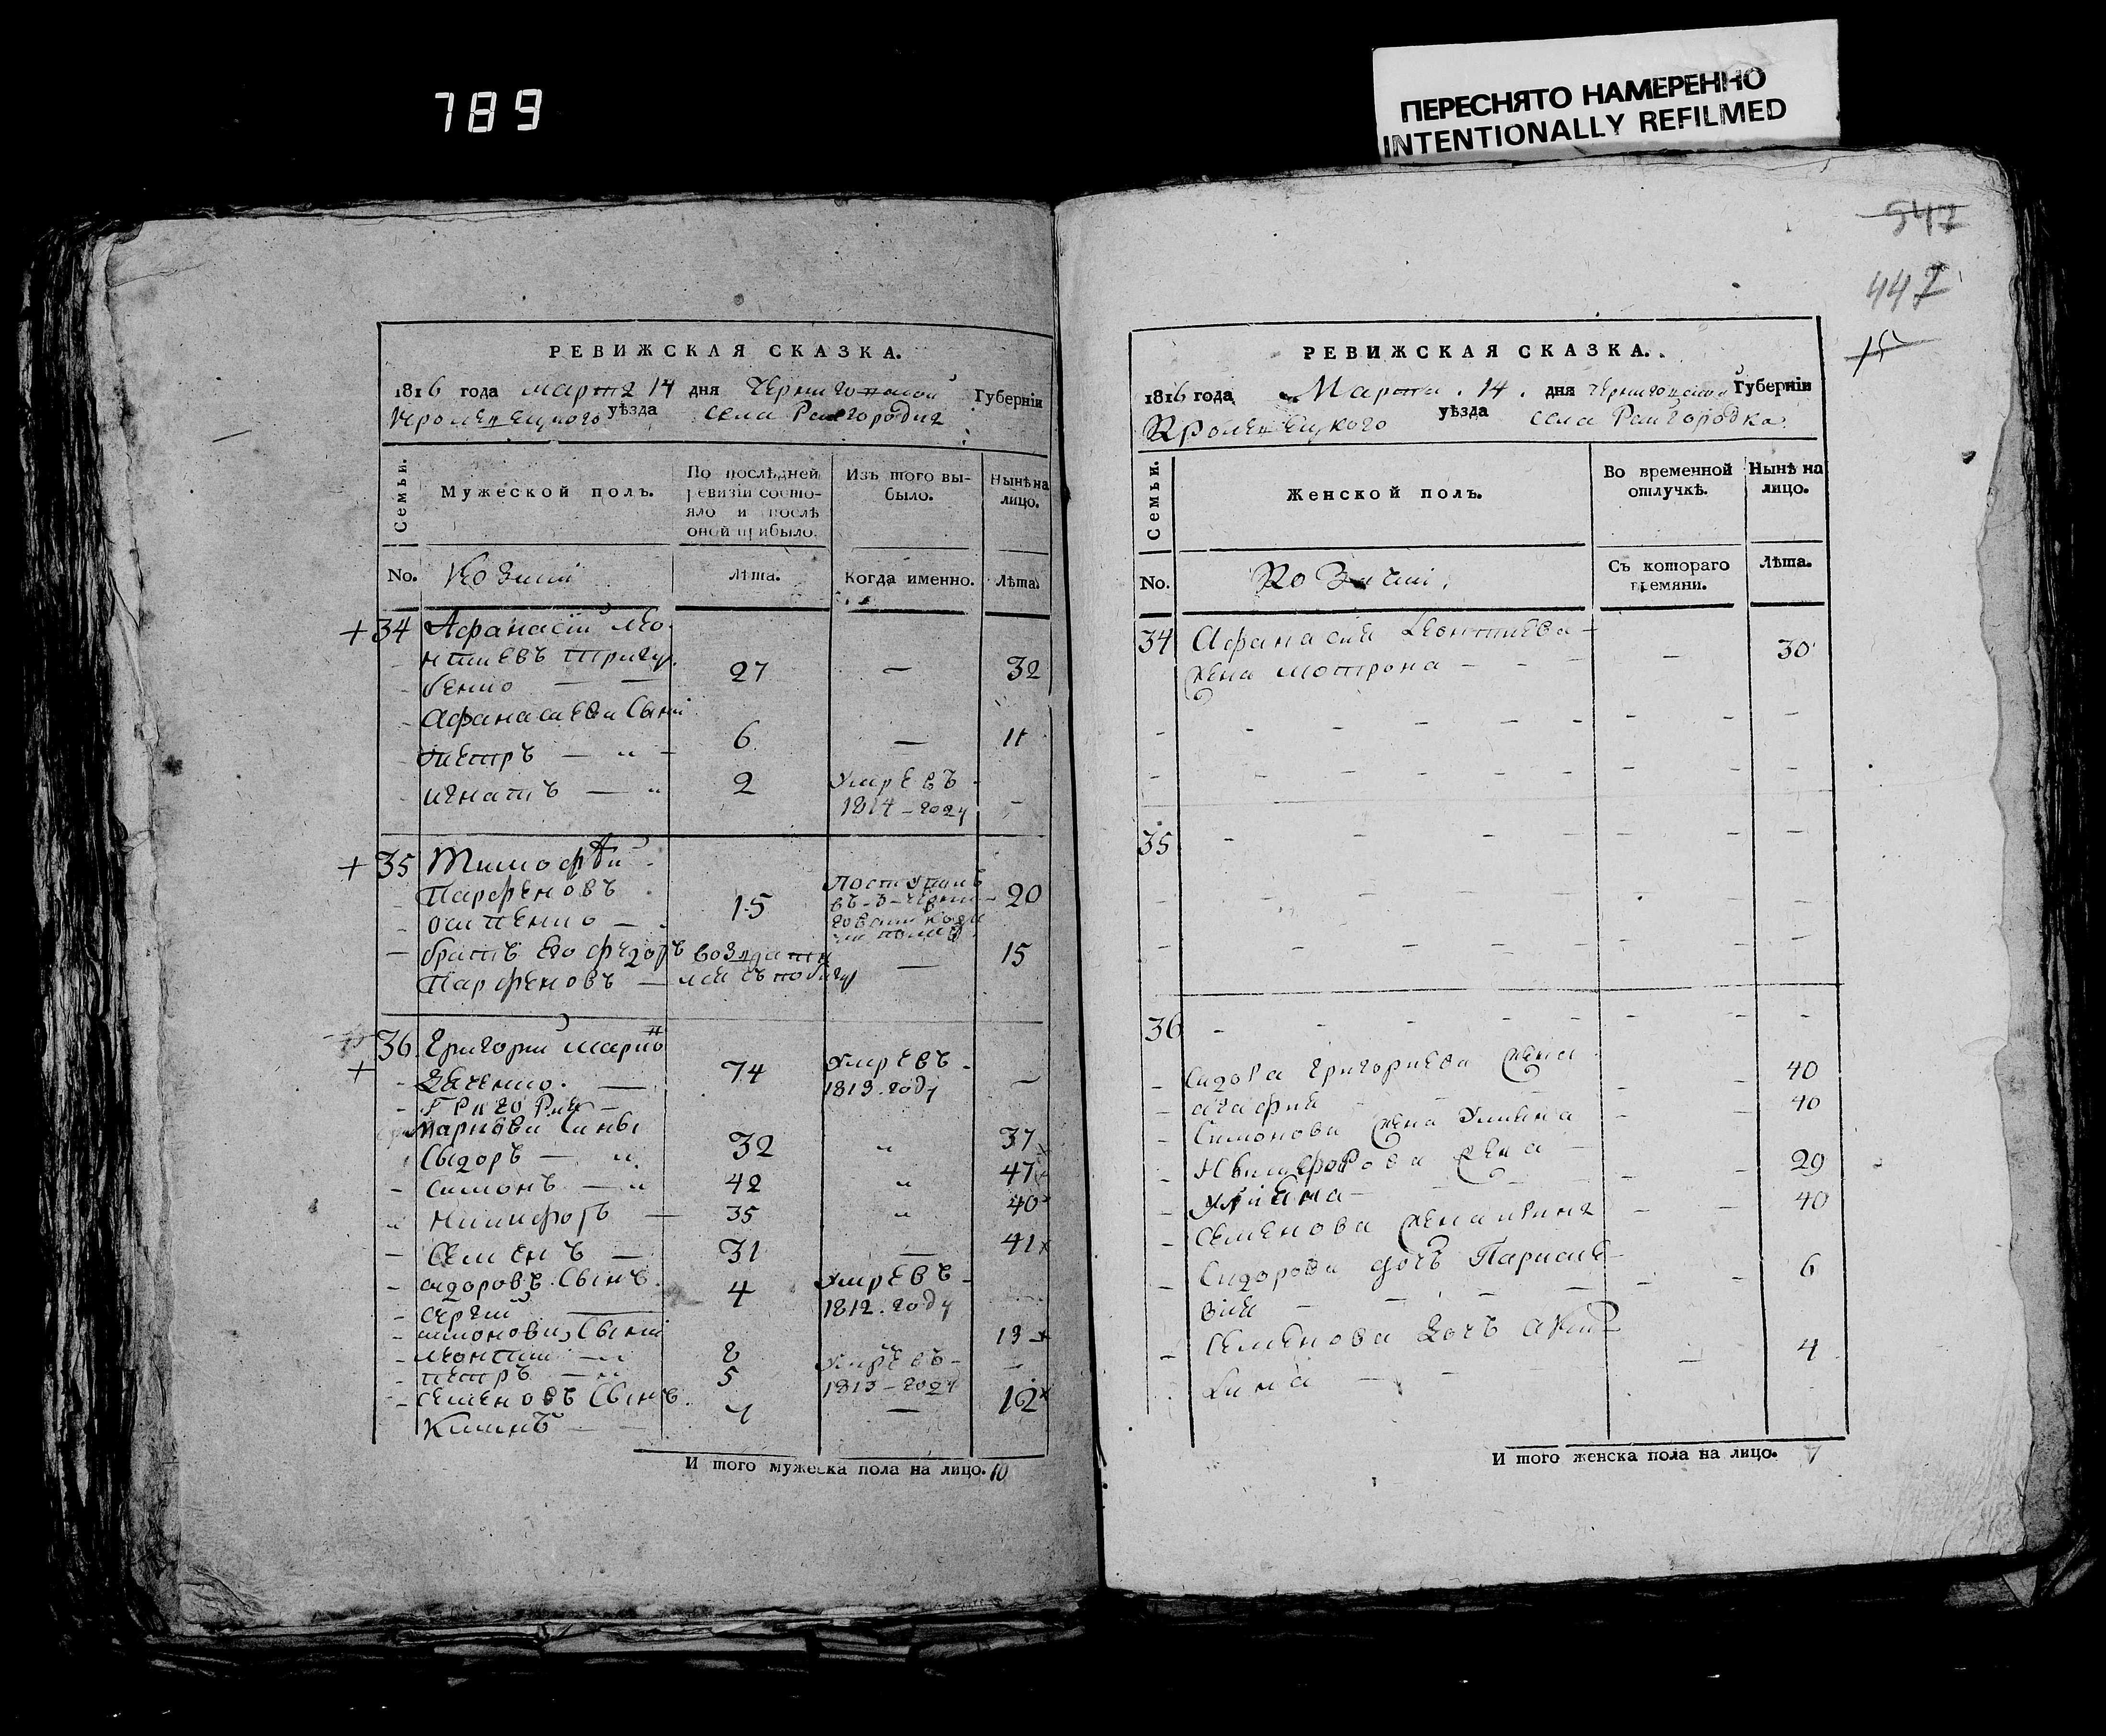 789
ПЕРЕСНЯТО НАМЕРЕННО
INTENTIONALLY REFILMED
РЕВИЖСКАЯ СКАЗКА.
1816 года марта 14 дня Черниговской Губерніи
Кролевецкого уѣзда села Райгородка
Семьи.
Мужеской полъ.
По послѣдней
ревизіи состо-
яло и послѣ
оной прибыло.
Изъ того вы-
было.
Нынѣ на
лицо.
No. Козаки
Лѣта.
Когда именно.
Лѣта.
+34 Афанасій Лео-
нтиевъ Тригу-
бенко — — 27 — 32
Афанасиева Сыни
Петръ — 〃 — 6 — 11
игнатъ — 〃 2 Умрѣвъ
1814 – году –
+35 Тимофѣй
Парфеновъ
осипенко — 15 Поступилъ
въ - 3 - Черни- 20
говскій каза
чій полкъ
— братъ его Федоръ 15
Парфеновъ — —
36 Григорий Марко
+ 74 Умрѣвъ
1813. году —
Григория
Маркова Сины
Сыдоръ — 〃 32 〃 37
Симонъ — 〃 42 〃 47
Никифоръ — 35 〃 40
Семенъ — 31 — 41
сидоровъ Сынъ
Сергий — 4 Умрѣвъ
1812. году
симоновы Сыни
леонтий — 〃 8 〃 13
петръ — 〃 5 Умрѣвъ
1813 – году —
семеновъ Сынъ
Климъ — 7 — 12
И того мужеска пола на лицо. 10
547
447
15
РЕВИЖСКАЯ СКАЗКА.
1816 года Марта. 14. дня Черниговской Губерніи
Кролевецкого уѣзда села Райгородка
Семьи.
Женской полъ.
Во временной
отлучкѣ.
Нынѣ на
лицо.
No. Козачки
Съ котораго
времяни.
Лѣта.
34 Афанасия Леонтиева
жена мотрона — — — 30
35
36
Сидора Григориева жена
агафия 40
Симонова жена Улияна 40
Никифорова жена
Улияна — 29
Семенова жена ирина 40
Сидорова дочь Параске-
вия — 6
Семенова дочь Аку-
лина — 4
И того женска пола на лицо. 7